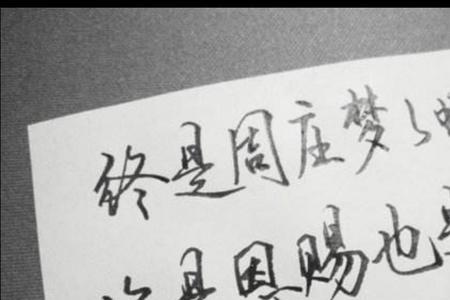 终是周庄梦了
是恩赐也